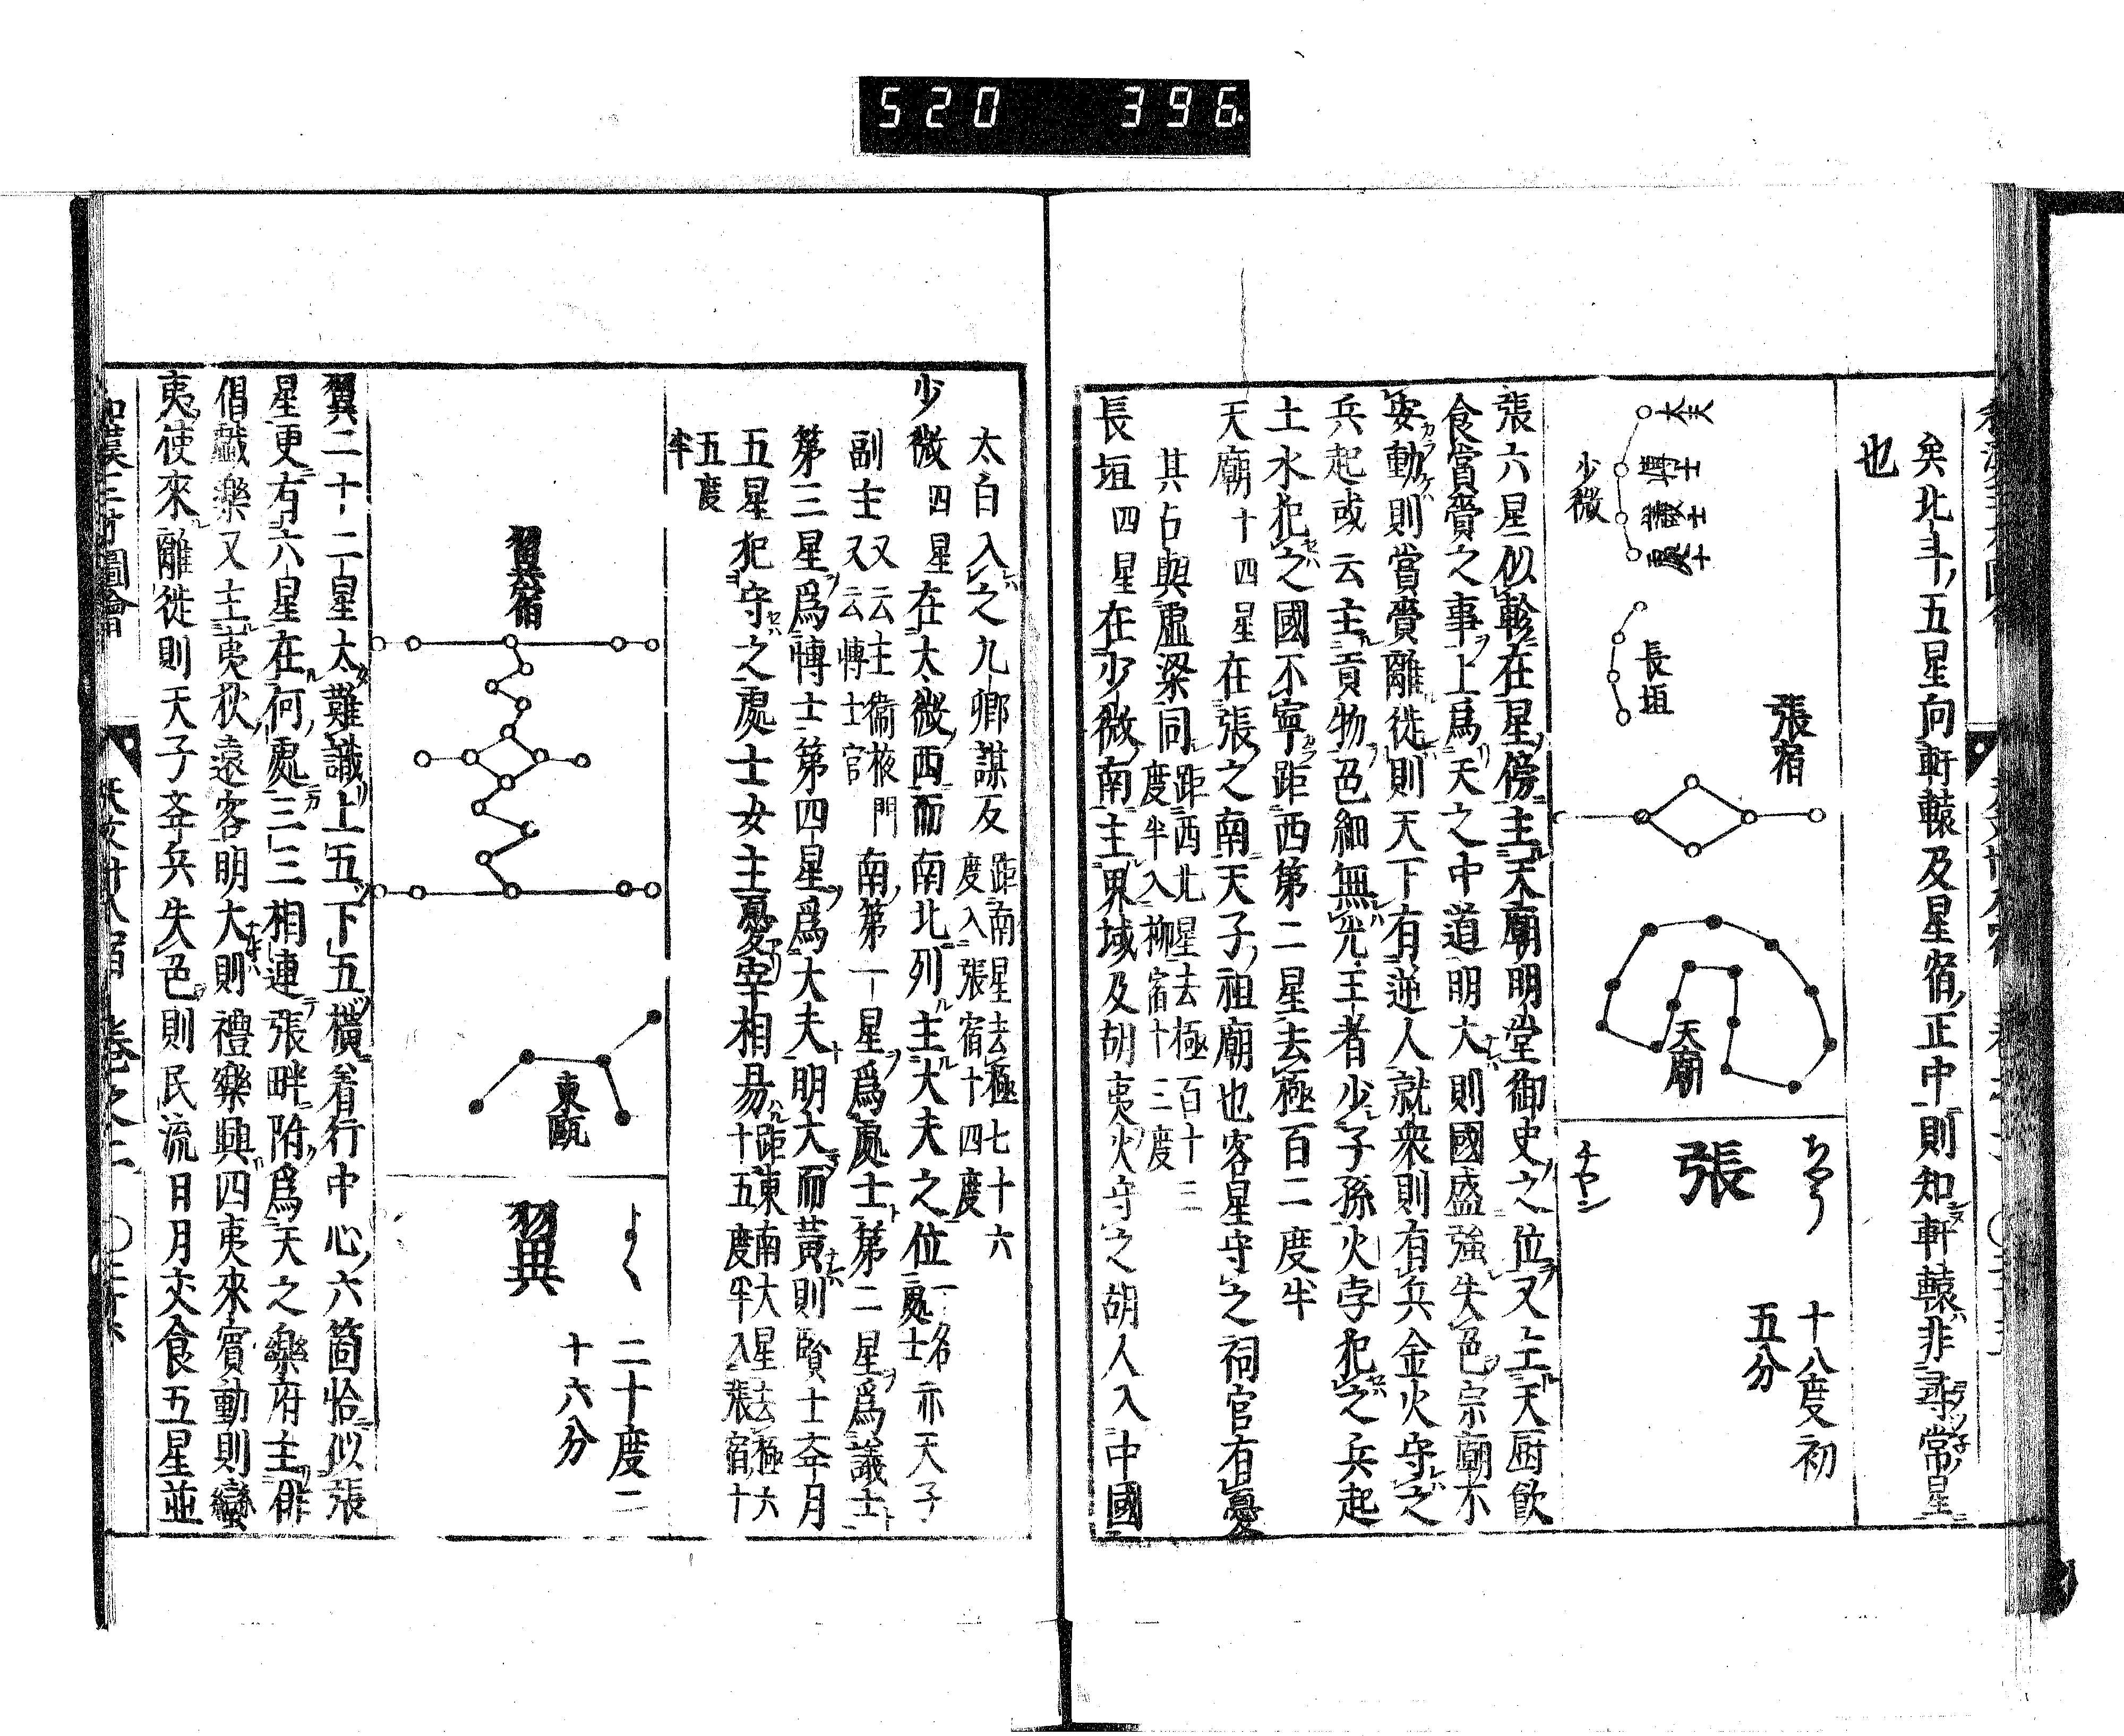 520 396
矣北斗五星向軒轅及星宿正中則知軒轅非尋常星
也
張宿
大夫
博士
議士
處士
少微
長垣
天廟
張
ちやう
チヤン
十八度初
五分
張六星似軫在星傍主天廟明堂御史之位又主天厨飲
食賞賚之事上爲天之中道明大則國盛強失色宗廟不
安動則賞賚離徙則天下有逆人就衆則有兵金火守之
兵起或云主貢物色細無光王者少子孫火孛犯之兵起
土水犯之國不寧距西第二星去極百二度半
天廟十四星在張之南天子祖廟也客星守之祠官有憂
其占與虛梁同距西北星去極百十三
度半入柳宿十三度
長垣四星在少微南主界域及胡夷火守之胡人入中國
太白入之九卿謀反距南星去極七十六
度入張宿十四度
少微四星在太微西而南北列主大夫之位一名
處士亦天子
副主又云主衞掖門
又云博士官南第一星爲處士第二星爲議士
第三星爲博士第四星爲大夫明大而黃則賢士奉月
五星犯守之處士女主憂宰相易距東南大星去極六
十五度半入張宿十
五度
半
翼宿
東甌
翼
よく
二十度二
十六分
翼二十二星太難識上五下五橫着行中心六箇恰似張
星更有六星在何處三三相連張畔附爲天之樂府主俳
倡戯樂又主夷狄遠客明大則禮樂興四夷來賓動則蠻
夷使來離徙則天子奉兵失色則民流日月交食五星並
和漢三才圖會
天文廿八宿 卷之二